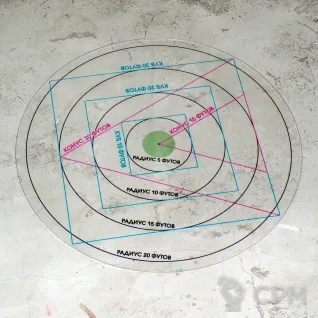 КУБ 30 ФУТОВ
КУБ 20 ФУТОВ
КОНУС 30 ФУТОВ
КОНУС 15 ФУТОВ
КУБ 10 ФУТОВ
РАДИУС 5 ФУТОВ
РАДИУС 10 ФУТОВ
РАДИУС 15 ФУТОВ
РАДИУС 20 ФУТОВ
СРМ